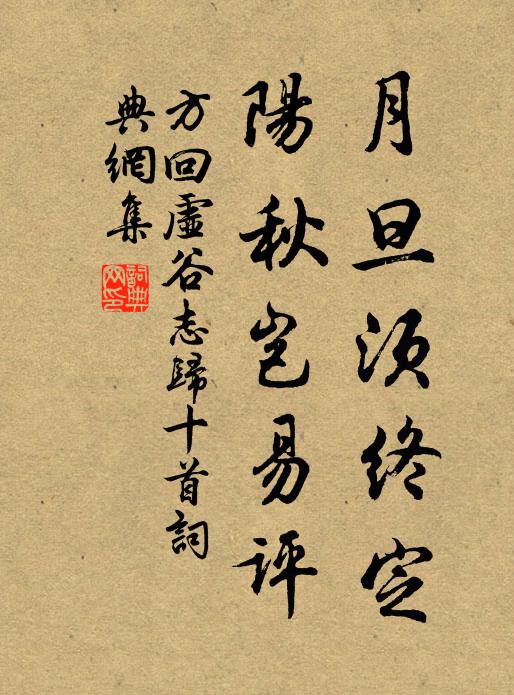 月旦須終定
陽秋岂易評
方回虛谷志歸十首詞
典網集
詞典
网印